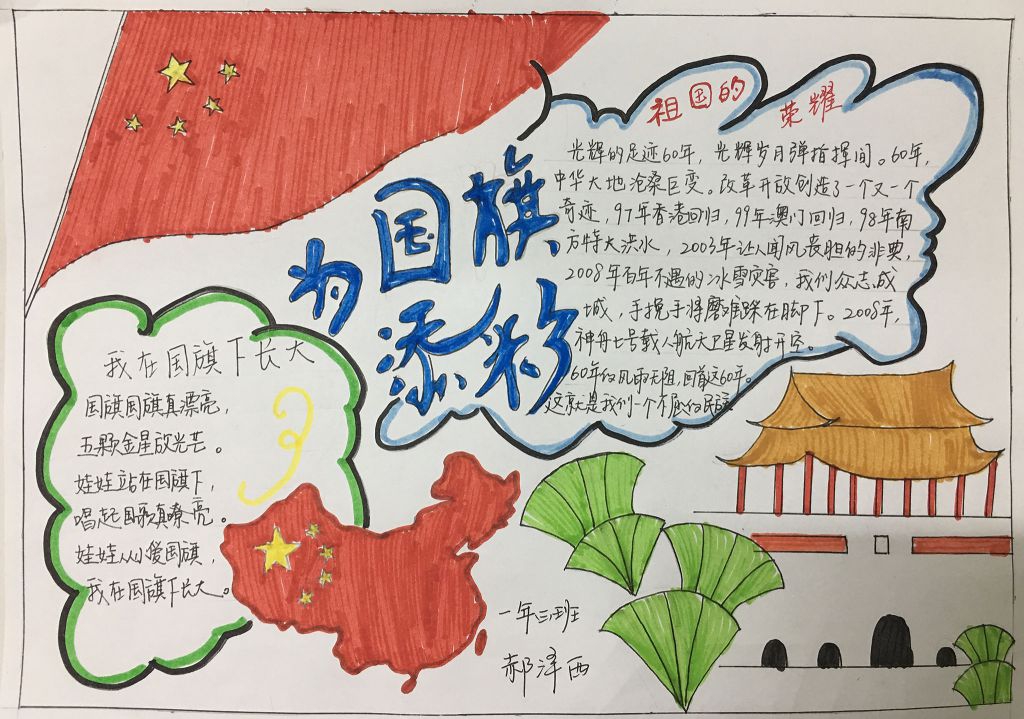 为国旗
添彩
祖国的
荣耀
光辉的足迹60年，光辉岁月弹指挥间。60年，
中华大地沧桑巨变。改革开放创造了一个又一个
奇迹，97年香港回归，99年澳门回归，98年南
方特大洪水，2003年让人闻风丧胆的非典，
2008年百年不遇的冰雪灾害，我们众志成
城，手挽手将磨难踩在脚下。2008年，
神舟七号载人航天卫星发射升空。
60年的风雨无阻，回首这60年。
这就是我们一个不屈的民族
我在国旗下长大
国旗国旗真漂亮，
五颗金星放光芒。
娃娃站在国旗下，
唱起国歌真嘹亮。
娃娃从小爱国旗，
我在国旗下长大。
一年三班
郝泽西